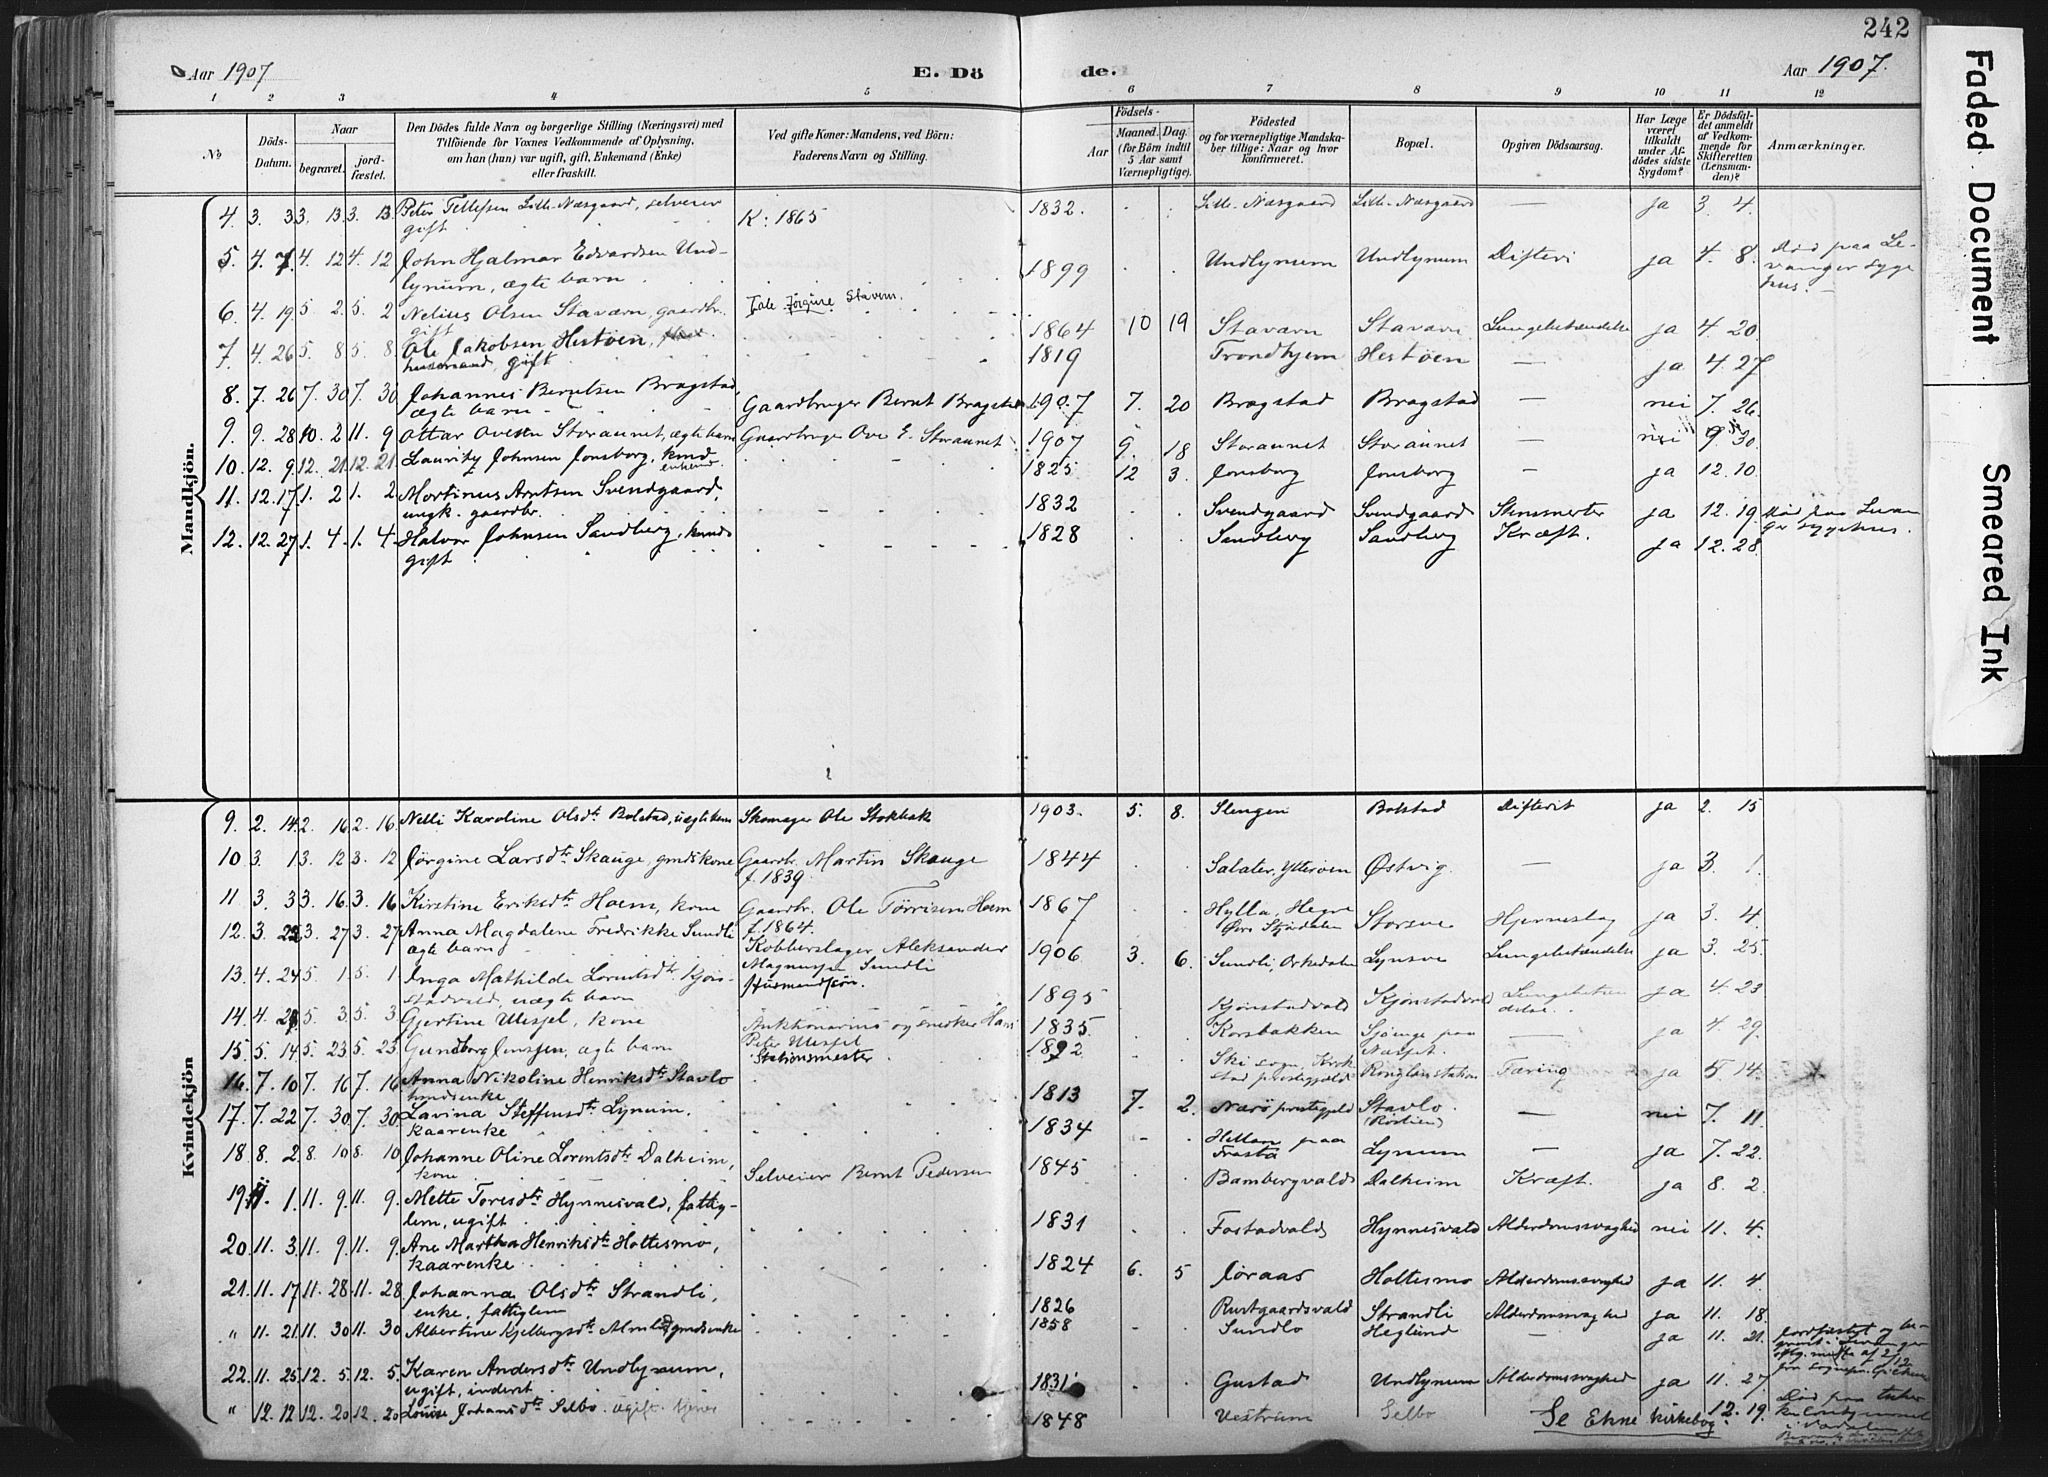 242
Aar 1907
E. Dö
de.
Aar 1907.
1 2 3 4 5 6 7 8 9 10 11 12
No
Döds-Datum.
Naar
begravet.
jord-fæstet.
Den Dödes fulde Navn og borgerlige Stilling (Næringsvei) med
Tilföiende for Voxnes Vedkommende af Oplysning,
om han (hun) var ugift, gift, Enkemand (Enke)
eller fraskilt.
Ved gifte Koner: Mandens, ved Börn:
Faderens Navn og Stilling.
Födsels-
Aar
Maaned. Dag.
(for Börn indtil
5 Aar samt
Værnepligtige).
Födested
og for værnepligtige Mandska-
ber tillige: Naar og hvor
konfirmeret.
Bopæl.
Opgiven Dödsaarsag.
Har Læge
været
tilkaldt
under Af-
dödes sidste
Sygdom?
Er Dödsfal-
det anmeldt
af Vedkom-
mende for
Skifteretten
(Lensman-
den)?
Anmærkninger.
Faded Document
Smeared Ink
Mandkjön.
4. 3. 3 3. 13. 3. 13. Peter Tellefsen Lill-Næsgaard, selveier gift K: 1865 1832. Lill-Næsgaard Lill-Næsgaard — ja 3. 4.
5. 4. 7. 4. 12 4. 12 John Hjalmar Edvardsen Und-
lynum, ægte barn 1899 Undlynum Undlynum Difteri ja 4. 8. Död paa Le-
vanger syge
hus.
6. 4. 19. 5. 2. 5. 2 Nelius Olsen Staværn, gaardbr. gift Tale Jørgine Stavern. 1864 10 19 Stavarn Stavarn Lungebetændelse ja 4. 20
7. 4. 26 5. 8 5. 8. Ole Jakobsen Hestøen,
husmand, gift 1819 Trondhjem Hestöen — ja 4. 27
8. 7. 26 7. 30 7. 30 Johannes Berntsen Bragstad,
ægte barn Gaardbruger Bernt Bragstad 1907 7. 20 Bragstad Bragstad — nei 7. 26.
9. 9. 28 10. 2 11. 9 Ottar Ovesen Storaunet, ægte barn Gaardbruger Ove E. Storaunet 1907 9. 18 Storaunet Storaunet — nei 9 30.
10. 12. 9 12. 21. 12. 21. Lauritz Johnsen Jonsborg, kmd. enkemd. 1825 12 3. Jonsborg Jonsborg — ja 12. 10.
11. 12. 17. 1. 2 1. 2 Mortinus Arntsen Svendgaard,
ungk. gaardbr. 1832 Svendgaard Svendgaard Stensmerter ja 12. 19. Död paa Levan-
ger sygehus.
12. 12. 27 1. 4. 1. 4. Halvor Johnsen Sandberg,
gift 1828 Sandberg Sandberg Kræft. ja 12. 28.
Kvindekjön
9. 2. 14. 2. 16 2. 16. Nelli Karoline Olsdtr Bolstad, uægte barn Skomager Ole Stokbak 1903. 5. 8. Slengen Bolstad Difterit ja 2. 15
10 3. 1 3. 12 3. 12 Jørgine Larsdtr Skauge, gmdskone Gaardbr. Martin Skauge
f. 1839. 1844 Salater, Ytterøen Østvig — ja 3. 1.
11 3. 3 3. 16. 3. 16 Kirstine Eriksdtr Hoem, kone Gaardbr. Ole Törrisen Hoem
f. 1864. 1867 Hylla, Hegre
Övre Stjördalen Storsve Hjerneslag ja 3. 4.
12. 3. 3. 27 3. 27 Anna Magdalene Fredrikke Sundli
ægte barn Kobberslager Aleksander
Magnusen Sundli 1906 3. 6. Sundli, Orkedalen Lynsve Lungebetændelse ja 3. 25.
13. 4. 24 5. 1 5. 1 Inga Mathilde Lorentsdtr Kjön-
stadvald, uægte barn Husmandssön. 1895 Kjönstadvald Kjönstadvald Lungebetæn-
delse ja 4. 23
14. 4. 5. 3 5. 3 Gjertine Wessel, kone Auktionarius og snedker Hans
Peter Wessel 1835. Korsbakken Sjöenge paa
Næsset. — ja 4. 29.
15. 5. 14. 5. 23 5. 23. Gundborg Jenssen, ægte barn Stationsmester 1892 Ski sogn, Krok-
stad prestegjæld Ronglan station Tæring ja 5. 14.
16. 7. 10 7. 16 7. 16 Anna Nikoline Henriksdtr Stavlo
kmdsenke 1813 7. 2. Nærö prestegjeld Stavlo
(Röstien) — nei 7. 11
17. 7. 22 7. 30 7. 30 Lavina Steffensdtr Lynum.
kaarenke 1834 Hellan paa
Frosta Lynum — ja 7. 22.
18 8. 2 8. 10 8. 10 Johanne Oline Lorentsdtr Dalheim,
kone Selveier Bernt Pedersen 1845 Bambergvald Dalheim Kræft. ja 8. 2.
19. 11. 1. 11. 9. 11. 9. Mette Toresdtr Hynnesvald, fattig-
lem, ugift 1831 Fostadvald Hynnesvald Alderdomssvaghed nei 11. 4.
20 11. 3. 11. 9. 11. 9. Ane Martha Henriksdtr Holtesmo,
kaarenke 1824 6. 5 Joraas Holtesmo Alderdomssvaghed ja 11. 4
21. 11. 17 11. 28 11. 28. Johanna Olsdtr Strandli,
enke, fattiglem 1826 Rustgaardsvald Strandli Alderdomssvaghed ja 11. 18.
" 11. 21. 11. 30 11. 30 Albertine Kjelbergsdtr Almlid, gmdsenke 1858 Sundlo Heglund — ja 11. 21. Jordfæstet og be-
22. 11. 25. 12. 5. 12. 5. Karen Andersdtr Undlynum,
ugift, inderst 1831 Gustad Undlynum Alderdomssvaghed ja 11. 27
" 12. 12 12. 20 12. 20 Louise Johansdtr Selbo. ugift. 1848 Vestrum Selbo Se Ekne kirkebog. 12. 19. Död paa tuber-